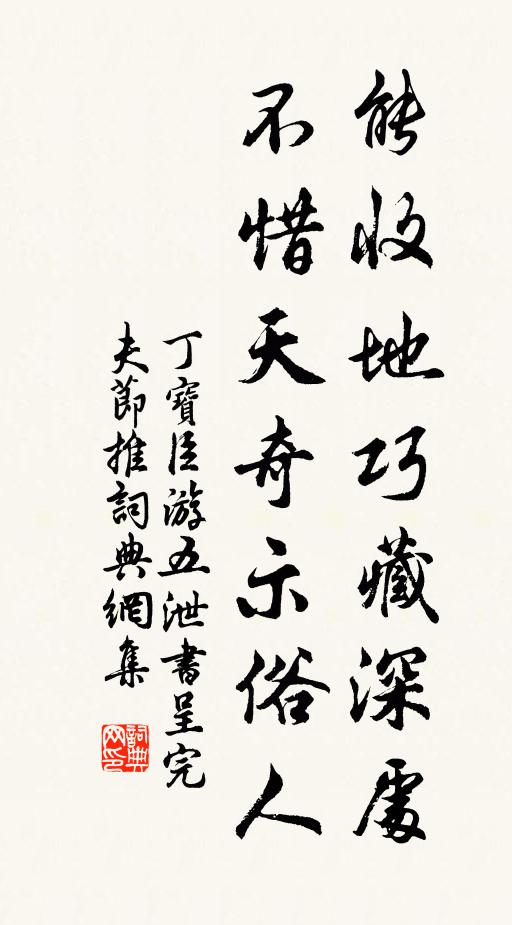 能收地巧藏深處
不惜天奇示俗人
丁寶臣游五泄書呈完
夫節推詞典網集
詞典网印